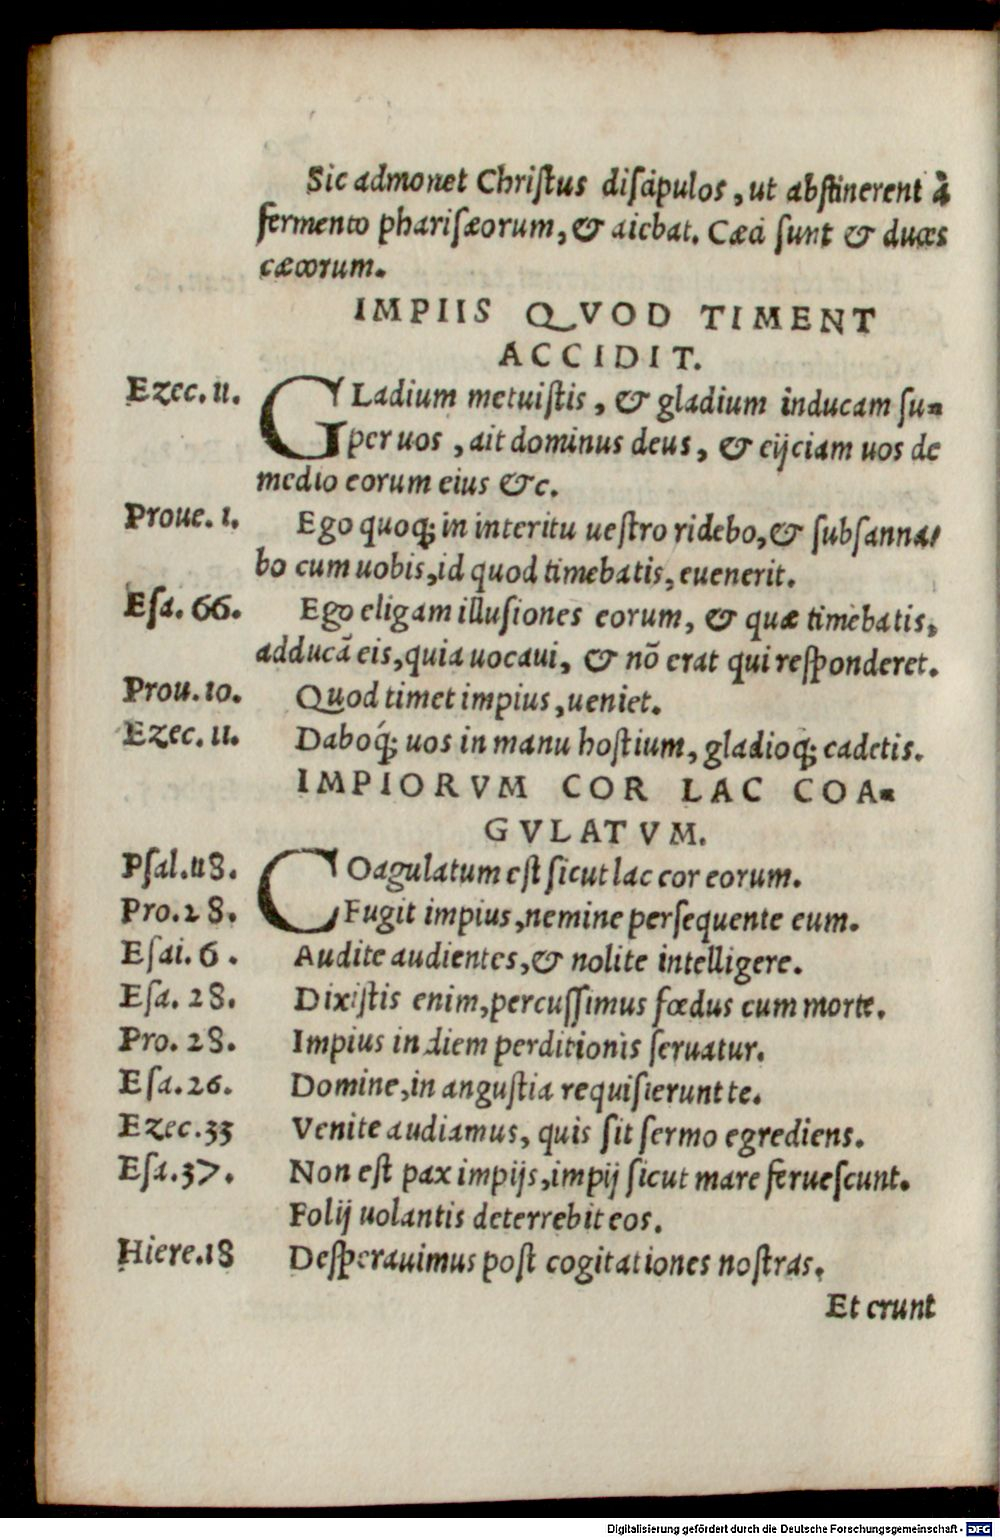 Sic admonet Christus discipulos, ut abstinerent à
fermento pharisæorum, & aiebat. Cæci sunt & duces
cæcorum.
IMPIIS QVOD TIMENT
ACCIDIT.
Ezec. 11. GLadium metuistis, & gladium inducam su-
per uos, ait dominus deus, & eijciam uos de
medio eorum eius &c.
Proue. 1. Ego quoq; in interitu uestro ridebo, & subsanna-
bo cum uobis, id quod timebatis, euenerit.
Esa. 66. Ego eligam illusiones eorum, & quæ timebatis,
adducã eis, quia uocaui, & nõ erat qui responderet.
Prou. 10. Quod timet impius, ueniet.
Ezec. 11. Daboq́; uos in manu hostium, gladioq; cadetis.
IMPIORVM COR LAC COA-
GVLATVM.
Psal. 118. COagulatum est sicut lac cor eorum.
Pro. 28. Fugit impius, nemine persequente eum.
Esai. 6. Audite audientes, & nolite intelligere.
Esa. 28. Dixistis enim, percussimus fœdus cum morte.
Pro. 28. Impius in diem perditionis seruatur.
Esa. 26. Domine, in angustia requisierunt te.
Ezec. 33 Venite audiamus, quis sit sermo egrediens.
Esa. 37. Non est pax impijs, impij sicut mare feruescunt.
Folij uolantis deterrebit eos.
Hiere. 18 Desperauimus post cogitationes nostras.
Et crunt
Digitalisierung gefördert durch die Deutsche Forschungsgemeinschaft - DFG